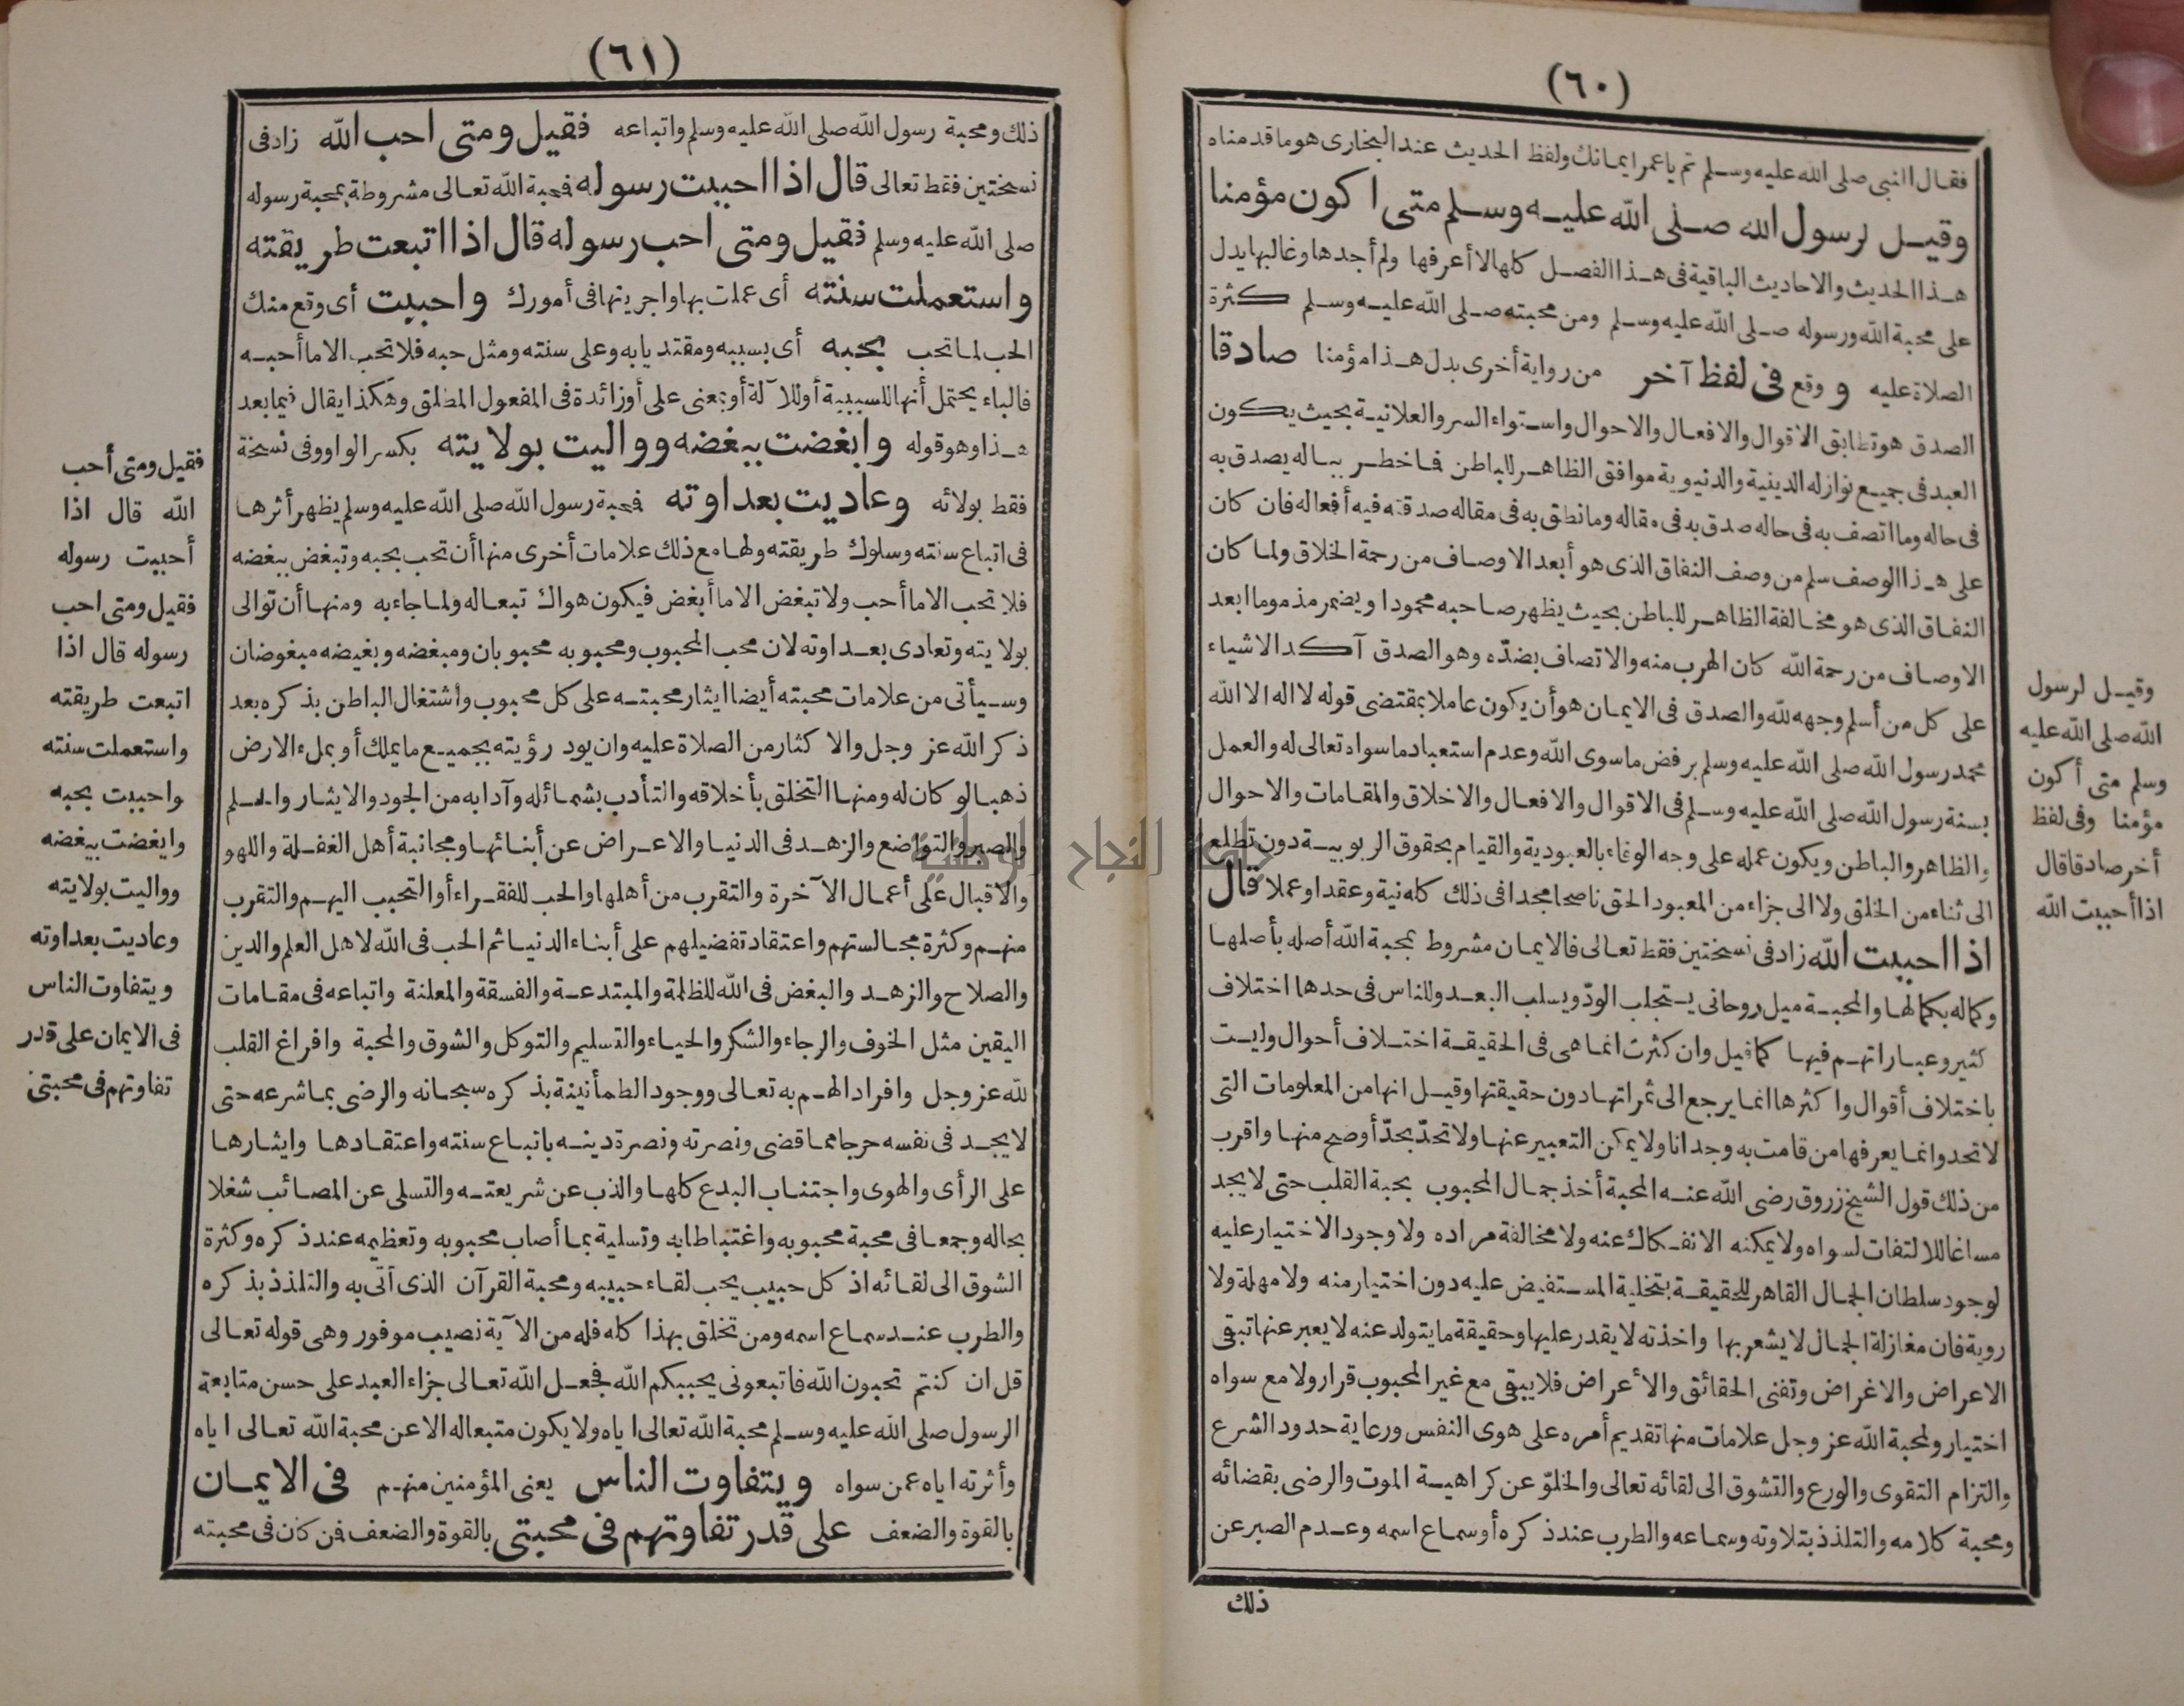 (٦٠)
فقال النبي صلى الله عليه وسلم تم يا عمر ايمانك ولفظ الحديث عند البخارى هو ما قدمناه
وقيل لرسول الله صلى الله عليه وسلم متى اكون مؤمنا
هذا الحديث والاحاديث الباقية فى هذا الفصل كلها لا أعرفها ولم أجدها وغالبها يدل
على محبة الله ورسوله صلى الله عليه وسلم ومن محبته صلى الله عليه وسلم كثرة
الصلاة عليه و وقع فى لفظ آخر من رواية أخرى بدل هذا مؤمنا صادقا
الصدق هو تطابق الاقوال والافعال والاحوال واستواء السر والعلانية بحيث يكون
العبد فى جميع نوازله الدينية والدنيوية موافق الظاهر للباطن فما خطر بباله يصدق به
فى حاله وما اتصف به فى حاله صدق به فى مقاله وما نطق به فى مقاله صدقته فيه أفعاله فان كان
على هذا الوصف سلم من وصف النفاق الذى هو أبعد الاوصاف من رحمة الخلاق ولما كان
النفاق الذى هو مخالفة الظاهر للباطن بحيث يظهر صاحبه محمودا ويضمر مذموما ابعد
الاوصاف من رحمة الله كان الهرب منه والاتصاف بضدّه وهو الصدق آكد الاشياء
على كل من أسلم وجهه لله والصدق فى الايمان هو أن يكون عاملا بمقتضى قوله لا اله الا الله
محمد رسول الله صلى الله عليه وسلم برفض ما سوى الله وعدم استعباد ما سواه تعالى له والعمل
بسنة رسول الله صلى الله عليه وسلم فى الاقوال والافعال والاخلاق والمقامات والاحوال
والظاهر والباطن ويكون عمله على وجه الوفاء بالعبودية والقيام بحقوق الربوبية دون تطلع
الى ثناء من الخلق ولا الى جزاء من المعبود الحق ناصحا مجدا فى ذلك كله نية وعقدا وعملا قال
اذا احببت الله زاد فى نسختين فقط تعالى فالايمان مشروط بمحبة الله أصله بأصلها
وكماله بكمالها والمحبة ميل روحانى يستجلب الودّ ويسلب البعد وللناس فى حدها اختلاف
كثير وعباراتهم فيها كما قيل وان كثرت انما هى فى الحقيقة اختلاف أحوال وليست
باختلاف أقوال واكثرها انما يرجع الى ثمراتها دون حقيقتها وقيل انها من المعلومات التى
لا تحد وانما يعرفها من قامت به وجدانا ولا يمكن التعبير عنها ولا تحدّ بحدّ أوضح منها واقرب
من ذلك قول الشيخ زروق رضى الله عنه المحبة أخذ جمال المحبوب بحبة القلب حتى لا يجد
مساغا للالتفات لسواه ولا يمكنه الانفكاك عنه ولا مخالفة مراده ولا وجود الاختيار عليه
لوجود سلطان الجمال القاهر للحقيقة بتخلية المستفيض عليه دون اختيار منه ولا مهلة ولا
روية فان مغازلة الجمال لا يشعر بها واخذته لا يقدر عليها وحقيقة ما يتولد عنه لا يعبر عنها تبقى
الاعراض والاغراض وتفنى الحقائق والأعراض فلا يبقى مع غير المحبوب قرار ولا مع سواه
اختيار ولمحبة الله عز وجل علامات منها تقديم أمره على هوى النفس ورعاية حدود الشرع
والتزام التقوى والورع والتشوق الى لقائه تعالى والخلوّ عن كراهية الموت والرضى بقضائه
ومحبة كلامه والتلذذ بتلاوته وسماعه والطرب عند ذكره أو سماع اسمه وعدم الصبر عن
ذلك
وقيل لرسول
الله صلى الله عليه
وسلم متى أكون
مؤمنا وفى لفظ
أخر صادقا قال
اذا أحببت الله
(٦١)
ذلك ومحبة رسول الله صلى الله عليه وسلم واتباعه فقيل ومتى احب الله زاد فى
نسختين فقط تعالى قال اذا احببت رسوله فمحبة الله تعالى مشروطة بمحبة رسوله
صلى الله عليه وسلم فقيل ومتى احب رسوله قال اذا اتبعت طريقته
واستعملت سنته أى عملت بها واجريتها فى أمورك واحببت أى وقع منك
الحب لما تحب بحبه أى بسببه ومقتديا به وعلى سنته ومثل حبه فلا تحب الا ما أحبه
فالباء يحتمل أنها للسببية أو للآلة أو بمعنى على أو زائدة فى المفعول المطلق وهكذا يقال فيما بعد
هذا وهو قوله وابغضت ببغضه وواليت بولايته بكسر الواو وفى نسخة
فقط بولائه وعاديت بعداوته فمحبة رسول الله صلى الله عليه وسلم يظهر أثرها
فى اتباع سنته وسلوك طريقته ولها مع ذلك علامات أخرى منها أن تحب بحبه وتبغض ببغضه
فلا تحب الا ما أحب ولا تبغض الا ما أبغض فيكون هواك تبعا له ولما جاء به ومنها أن توالى
بولايته وتعادى بعداوته لان محب المحبوب ومحبوبه محبوبان ومبغضه وبغيضه مبغوضان
وسيأتى من علامات محبته أيضا ايثار محبته على كل محبوب واشتغال الباطن بذكره بعد
ذكر الله عز وجل والاكثار من الصلاة عليه وان يود رؤيته بجميع ما يملك أو بملء الارض
ذهبا لو كان له ومنها التخلق بأخلاقه والتأدب بشمائله وآدابه من الجود والايثار والحلم
والصبر والتواضع والزهد فى الدنيا والاعراض عن أبنائها ومجانبة أهل الغفلة واللهو
والاقبال على أعمال الآخرة والتقرب من أهلها والحب للفقراء أو التحبب اليهم والتقرب
منهم وكثرة مجالستهم واعتقاد تفضيلهم على أبناء الدنيا ثم الحب فى الله لاهل العلم والدين
والصلاح والزهد والبغض فى الله للظلمة والمبتدعة والفسقة والمعلنة واتباعه فى مقامات
اليقين مثل الخوف والرجاء والشكر والحياء والتسليم والتوكل والشوق والمحبة وافراغ القلب
لله عز وجل وافراد الهم به تعالى ووجود الطمأنينة بذكره سبحانه والرضى بما شرعه حتى
لا يجد فى نفسه حرجا مما قضى ونصرته ونصرة دينه باتباع سنته واعتقادها وايثارها
على الرأى والهوى واجتناب البدع كلها والذب عن شريعته والتسلى عن المصائب شغلا
بحاله وجمعا فى محبة محبوبه واغتباطا به وتسلية بما أصاب محبوبه وتعظيمه عند ذكره وكثرة
الشوق الى لقائه اذ كل حبيب يحب لقاء حبيبه ومحبة القرآن الذى أتى به والتلذذ بذكره
والطرب عند سماع اسمه ومن تخلق بهذا كله فله من الآية نصيب موفور وهى قوله تعالى
قل ان كنتم تحبون الله فاتبعونى يحببكم الله فجعل الله تعالى جزاء العبد على حسن متابعة
الرسول صلى الله عليه وسلم محبة الله تعالى اياه ولا يكون متبعا له الا عن محبة الله تعالى اياه
وأثرته اياه عمن سواه ويتفاوت الناس يعنى المؤمنين منهم فى الايمان
بالقوة والضعف على قدر تفاوتهم فى محبتى بالقوة والضعف فمن كان فى محبته
فقيل ومتى أحب
الله قال اذا
أحببت رسوله
فقيل ومتى احب
رسوله قال اذا
اتبعت طريقته
واستعملت سنته
واحببت بحبه
وابغضت ببغضه
وواليت بولايته
وعاديت بعداوته
ويتفاوت الناس
فى الايمان على قدر
تفاوتهم فى محبتى
جامعة النجاح الوطنية